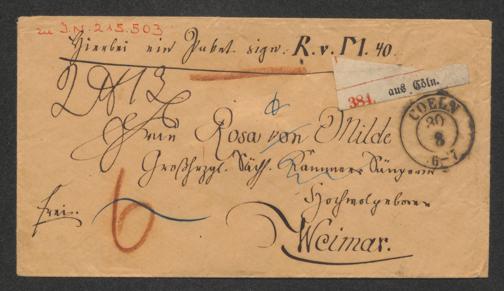 zu I.N. 215.503
Hierbei ein Paket sign. R. v. M. 40.
381. aus Cöln.
COELN
30
8
6-7
Frau Rosa von Milde
Großhrzgl. Sächs. Kammer Sängerin
Hochwolgeboren
frei.
6
Weimar.